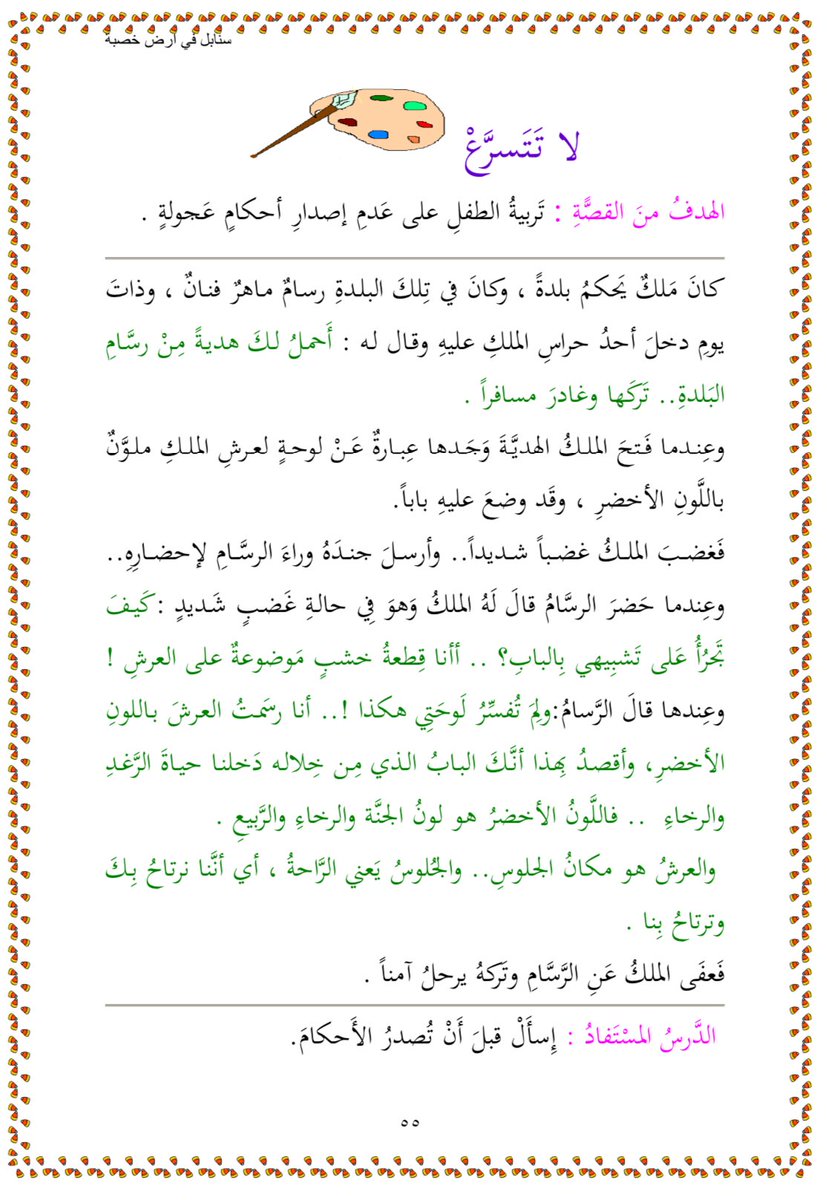 سنابل في أرض خصبة
لا تَتَسرَّعْ
الهدفُ منَ القصًّةِ : تَربيةُ الطفلِ على عَدمِ إصدارِ أحكامٍ عَجولةٍ .
كانَ مَلكٌ يَحكمُ بلدةً ، وكانَ في تِلكَ البلدةِ رسامٌ ماهرٌ فنانٌ ، وذاتَ
يومِ دخلَ أحدُ حراسِ الملكِ عليهِ وقال له : أَحملُ لكَ هديةً مِنْ رسَّامِ
البَلدةِ.. تَركَها وغادرَ مسافراً .
وعِندما فَتحَ الملكُ الهديَّةَ وَجَدها عِبارةٌ عَنْ لوحةٍ لعرشِ الملكِ ملوَّنٌ
باللَّونِ الأخضرِ ، وقَد وضعَ عليهِ باباً.
فَغضبَ الملكُ غضباً شديداً.. وأرسلَ جندَهُ وراءَ الرسَّامِ لإحضارِهِ..
وعِندما حَضرَ الرسَّامُ قالَ لَهُ الملكُ وَهوَ فِي حالةِ غَضبٍ شَديدٍ :كَيفَ
تَجرُأُ عَلى تَشبِيهي بِالبابِ؟ .. أأنا قِطعةُ خشبٍ مَوضوعةٌ على العرشِ !
وعِندها قالَ الرَّسامُ:ولِمَ تُفسِّرُ لَوحَتِي هكذا !.. أنا رسَمتُ العرشَ باللونِ
الأخضرِ، وأقصدُ بِهذا أنَّكَ البابُ الذي مِن خِلاله دَخلنا حياةَ الرَّغدِ
والرخاءِ .. فاللَّونُ الأخضرُ هو لونُ الجنَّة والرخاءِ والرَّبيعِ .
والعرشُ هو مكانُ الجلوسِ.. والجُلوسُ يَعني الرَّاحةُ ، أي أنَّنا نرتاحُ بِكَ
وترتاحُ بِنا .
فَعفَى الملكُ عَنِ الرَّسَّامِ وتَركهُ يرحلُ آمناً .
الدَّرسُ المسْتَفادُ : إِسأَلْ قبلَ أَنْ تُصدرُ الأَحكامَ.
٥٥